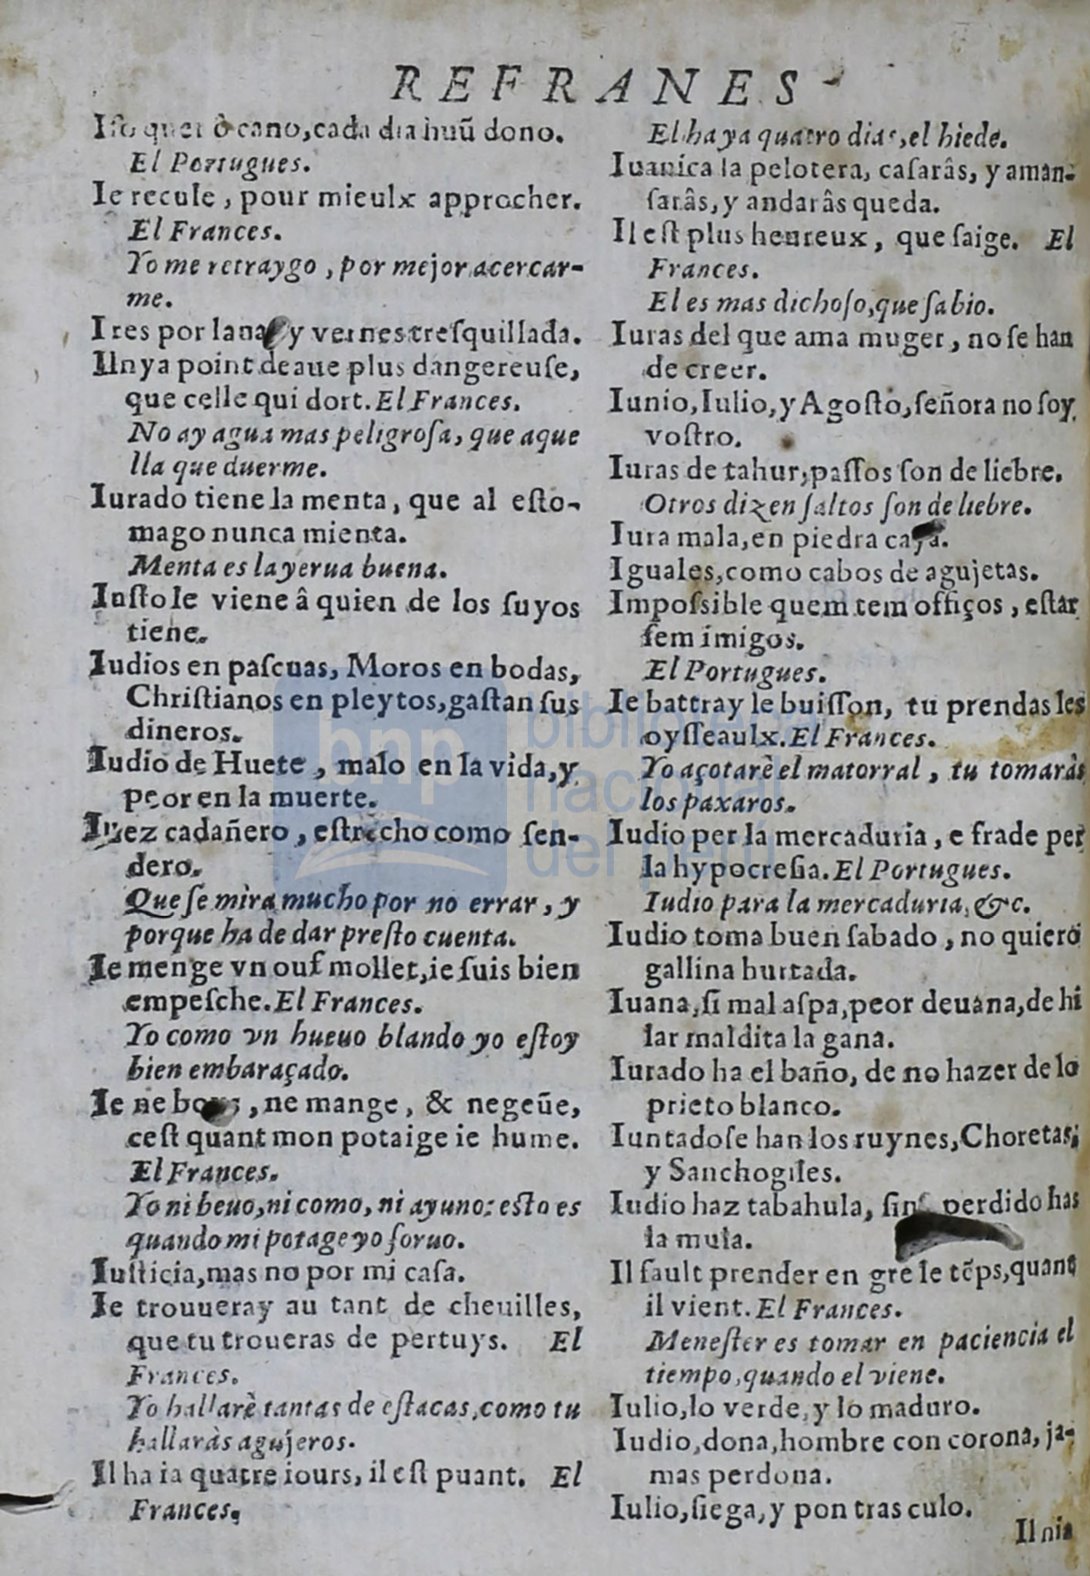 REFRANES
Iſo quer ò cano, cada dia huũ dono.
El Portugues.
Ie recule, pour mieulx approcher.
El Frances.
Yo me retraygo, por mejor acercar-
me.
Ires por lana, y vernes treſquillada.
Il n y a point de aue plus dangereuſe,
que celle qui dort. El Frances.
No ay agua mas peligroſa, que aque
lla que duerme.
Iurado tiene la menta, que al eſto-
mago nunca mienta.
Menta es la yerua buena.
Iuſto le viene â quien de los ſuyos
tiene.
Iudios en paſcuas, Moros en bodas,
Chriſtianos en pleytos, gaſtan ſus
dineros.
Iudio de Huete, malo en la vida, y
peor en la muerte.
Iuez cadañero, eſtrecho como ſen-
dero.
Que ſe mira mucho por no errar, y
porque ha de dar preſto cuenta.
Ie menge vn ouf mollet, ie ſuis bien
empeſche. El Frances.
Yo como vn hueuo blando yo eſtoy
bien embaraçado.
Ie ne, ne mange, & negeũe,
ceſt quant mon potaige ie hume.
El Frances.
Yo ni beuo, ni como, ni ayuno: esto es
quando mi potage yo ſoruo.
Iuſticia, mas no por mi caſa.
Ie trouueray au tant de cheuilles,
que tu troueras de pertuys. El
Frances.
Yo hallarè tantas de eſtacas, como tu
hallaràs agujeros.
Il ha ia quatre iours, il eſt puant. El
Frances.
El ha ya quatro dias, el hiede.
Iuanica la pelotera, caſarâs, y aman-
ſarâs, y andarâs queda.
Il eſt plus heureux, que ſaige. El
Frances.
El es mas dichoſo, que ſabio.
Iuras del que ama muger, no ſe han
de creer.
Iunio, Iulio, y Agoſto, ſeñora no ſoy
voſtro.
Iuras de tahur, paſſos ſon de liebre.
Otros dizen ſaltos ſon de liebre.
Iura mala, en piedra caya.
Iguales, como cabos de agujetas.
Impoſsible quem tem offiços, eſtar
ſem imigos.
El Portugues.
Ie battray le buiſſon, tu prendas les
oyſſeaulx. El Frances.
Yo açotarè el matorral, tu tomaràs
los paxaros.
Iudio per la mercaduria, e frade per
la hypocreſia. El Portugues.
Iudio para la mercaduria, &c.
Iudio toma buen ſabado, no quierò
gallina hurtada.
Iuana, ſi mal aſpa, peor deuana, de hi
lar maldita la gana.
Iurado ha el baño, de no hazer de lo
prieto blanco.
Iuntadoſe han los ruynes, Choretas,
y Sanchogiles.
Iudio haz tabahula, perdido has
la mula.
Il fault prender en grè le tẽps, quant
il vient. El Frances.
Meneſter es tomar en paciencia el
tiempo, quando el viene.
Iulio, lo verde, y lo maduro.
Iudio, dona, hombre con corona, ja-
mas perdona.
Iulio, ſiega, y pon tras culo.
Il nia
bnp biblioteca
nacional
del perú